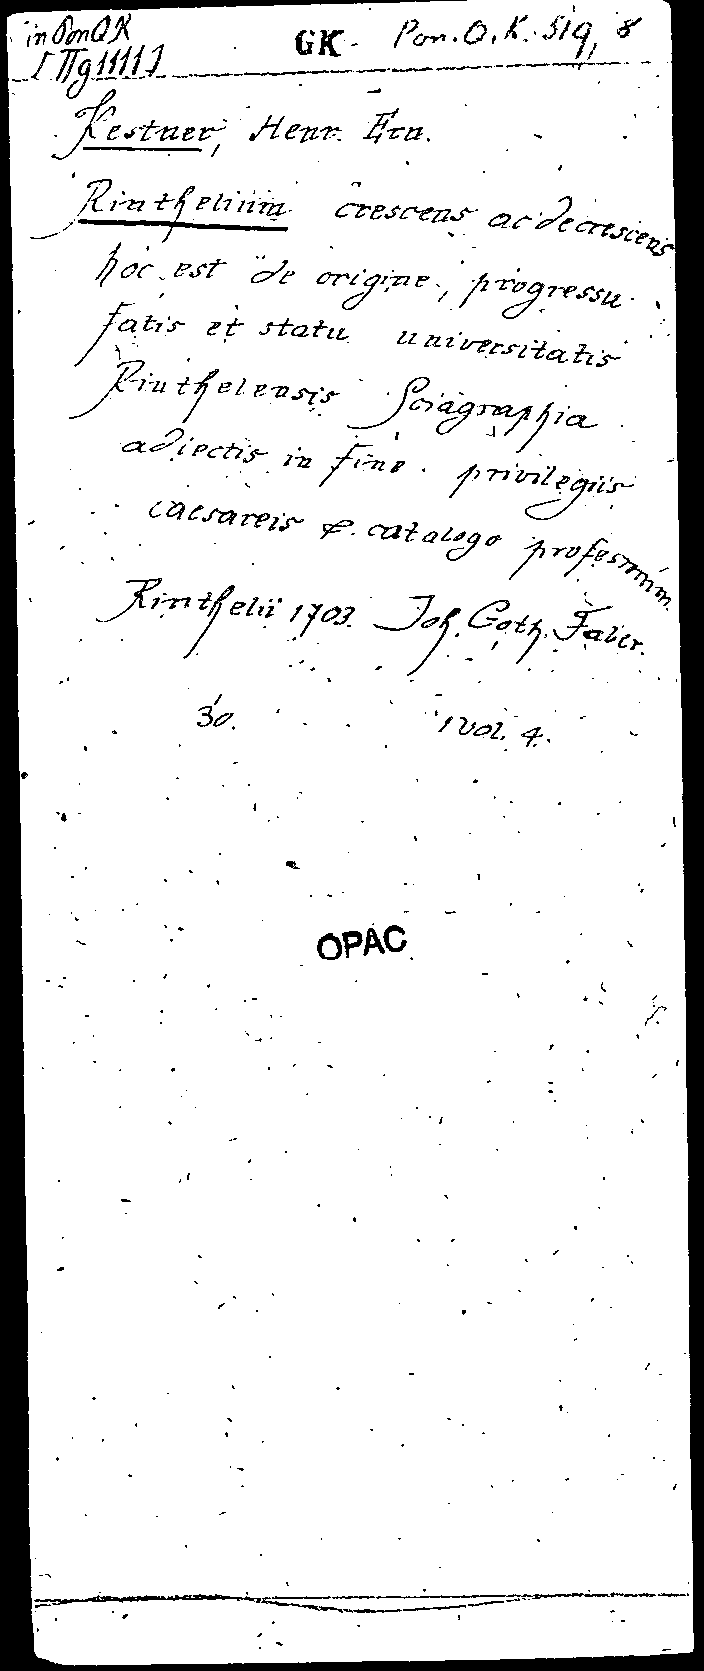 in Pon QK
[IIg1111]
GK Pon. Q. K. 519, 8
Kestner, Henr. Ern.
Rinthelium crescens ac decrescens
hoc est de origine, progressu
fatis et statu universitatis
Rinthelensis Sciagraphia
adiectis in fine privilegiis
caesareis & catalogo professorum.
Rinthelii 1703. Joh. Goth. Faber.
30. 1 vol. 4.
OPAC